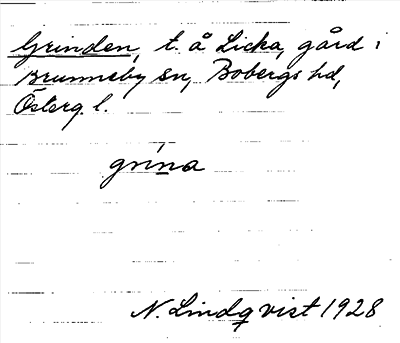 Grinden, t. å Licka, gård i
Brunneby sn, Bobergs hd,
Österg. l.
grína
N. Lindqvist 1928